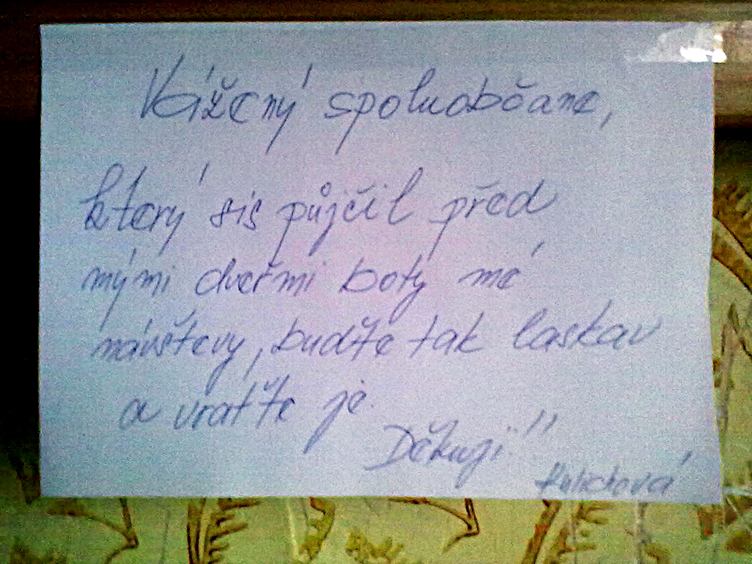 Vážený spoluobčane,
který sis půjčil před
mými dveřmi boty mé
návštevy, buďte tak laskav
a vraťte je.
Děkuji!!